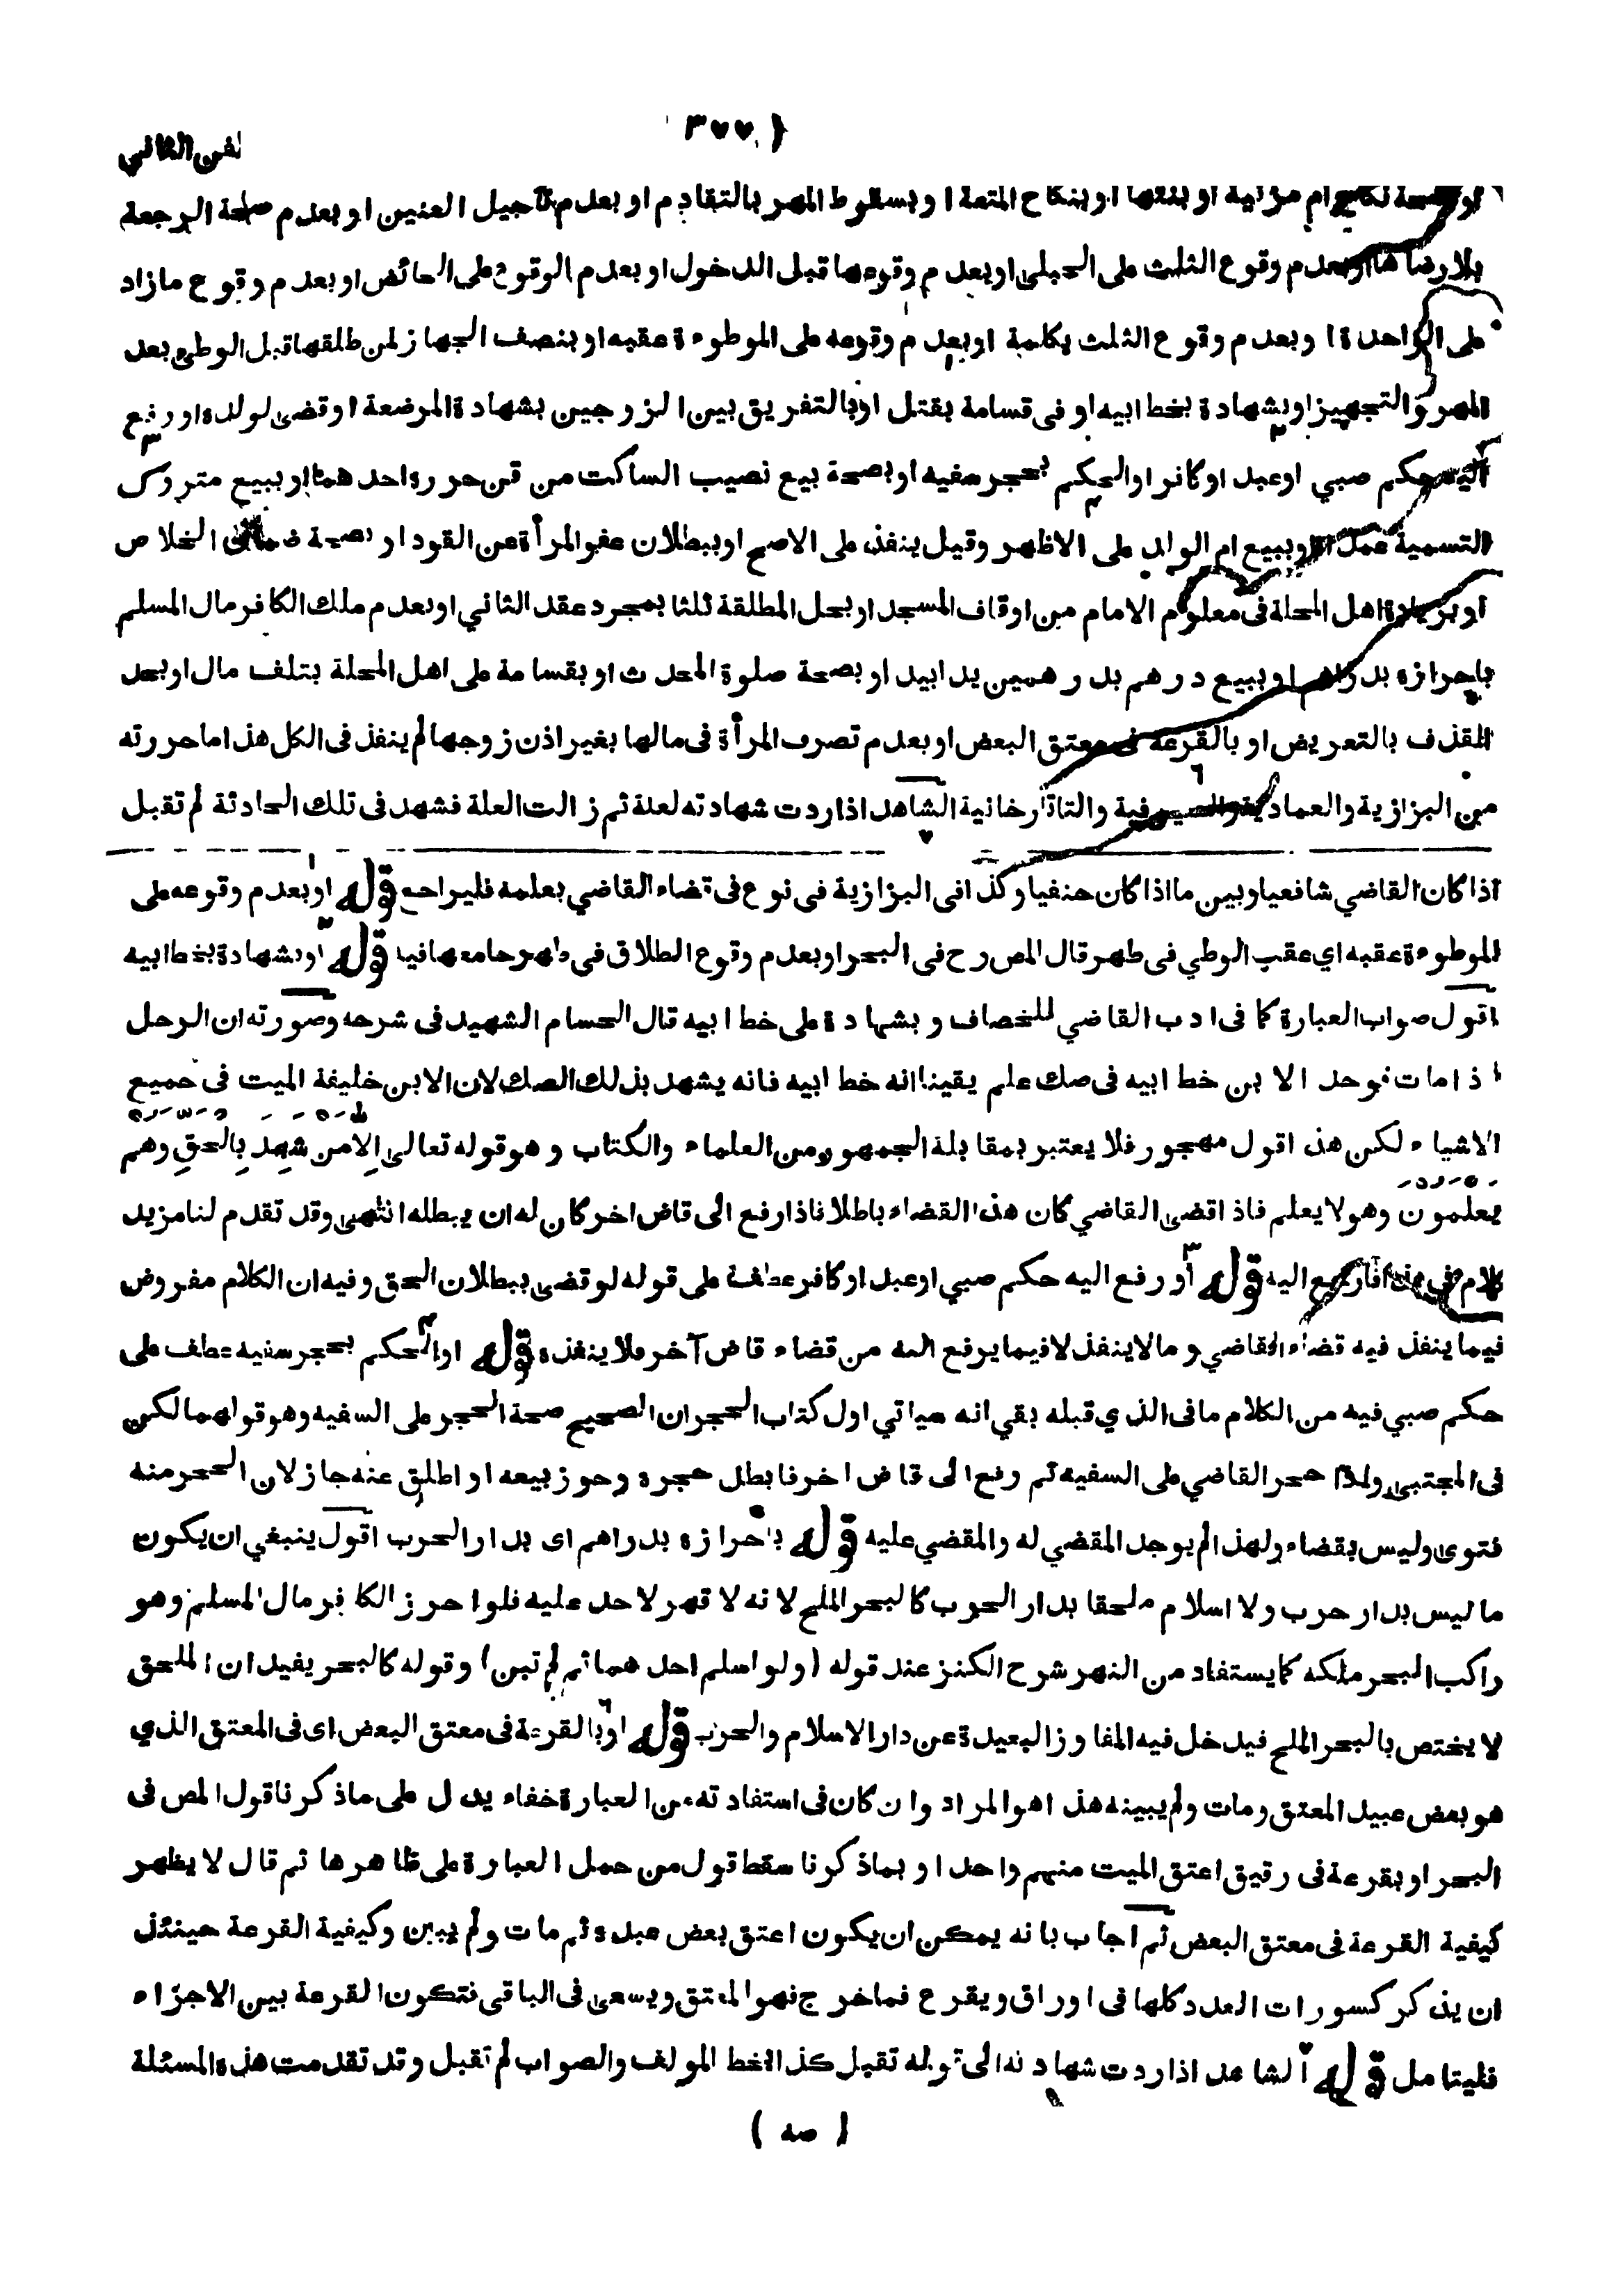 ( ٣٧٧
الفن الثاني
او بصحة نكاح ام مزنية او بنتها او بنكاح المتعة او بسقوط المهر بالتقادم او بعدم تاجيل العنين او بعدم صحة الرجعة
بلا رضاها او بعدم وقوع الثلث على الحبلى او بعدم وقوعها قبل الدخول او بعدم الوقوع على الحائض او بعدم وقوع مازاد
على الواحدة او بعدم وقوع الثلث بكلمة او بعدم وقوعه على الموطوءة عقبه او بنصف الجهاز لمن طلقها قبل الوطى بعد
المهر والتجهيز او بشهادة بخط ابيه او فى قسامة بقتل او بالتفريق بين الزوجين بشهادة المرضعة او قضى لولده او رفع
اليه حكم صبي او عبد او كافر او الحكم بحجر سفيه او بصحة بيع نصيب الساكت من قن حرره احدهما او ببيع متروك
التسمية عمدا او ببيع ام الولد على الاظهر وقيل ينفذ على الاصح او ببطلان عفو المرأة عن القود او بصحة ضمان الخلاص
او بزيادة اهل المحلة فى معلوم الامام من اوقاف المسجد او بحل المطلقة ثلثا بمجرد عقد الثاني او بعدم ملك الكافر مال المسلم
باحرازه بدراهم او ببيع درهم بدرهمين يدا بيد او بصحة صلوة المحدث او بقسامة على اهل المحلة بتلف مال او بحد
القذف بالتعريض او بالقرعة فى معتق البعض او بعدم تصرف المرأة فى مالها بغير اذن زوجها لم ينفذ فى الكل هذا ما حررته
من البزازية والعمادية والصيرفية والتاتارخانية الشاهد اذا ردت شهادته لعلة ثم زالت العلة فشهد فى تلك الحادثة لم تقبل
اذا كان القاضي شافعيا وبين ما اذا كان حنفيا وكذا فى البزازية فى نوع فى قضاء القاضي بعلمه فليراجع قوله او بعدم وقوعه على
الموطوءة عقبه اي عقب الوطي فى طهر قال المص رح فى البحر او بعدم وقوع الطلاق فى طهر جامعها فيه قوله او بشهادة بخط ابيه
اقول صواب العبارة كما فى ادب القاضي للخصاف و بشهادة على خط ابيه قال الحسام الشهيد فى شرحه وصورته ان الرجل
اذا مات فوجد الابن خط ابيه فى صك علم يقينا انه خط ابيه فانه يشهد بذلك الصك لان الابن خليفة الميت فى جميع
الاشياء لكن هذا قول مهجور فلا يعتبر بمقابلة الجمهور من العلماء والكتاب و هو قوله تعالى الا من شهد بالحق وهم
يعلمون وهو لا يعلم فاذا قضى القاضي كان هذا القضاء باطلا فاذا رفع الى قاض اخر كان له ان يبطله انتهى وقد تقدم لنا مزيد
كلام فى هذا فارجع اليه قوله او رفع اليه حكم صبي او عبد او كافر عطف على قوله لو قضى ببطلان الحق وفيه ان الكلام مفروض
فيما ينفذ فيه قضاء القاضي وما لا ينفذ لا فيما يرفع اليه من قضاء قاض آخر فلا ينفذه قوله او الحكم بحجر سفيه عطف على
حكم صبي فيه من الكلام ما فى الذي قبله بقي انه سياتي اول كتاب الحجر ان الصحيح صحة الحجر على السفيه وهو قولهما لكن
فى المجتبى ولهذا حجر القاضي على السفيه ثم رفع الى قاض اخر فابطل حجره وجوز بيعه او اطلق عنه جاز لان الحجر منه
فتوى وليس بقضاء ولهذا لم يوجد المقضي له والمقضي عليه قوله باحرازه بدراهم اى بدار الحرب اقول ينبغي ان يكون
ما ليس بدار حرب ولا اسلام ملحقا بدار الحرب كالبحر الملح لانه لا قهر لاحد عليه فلو احرز الكافر مال المسلم وهو
راكب البحر ملكه كما يستفاد من النهر شرح الكنز عند قوله (ولو اسلم احدهما ثم لم تبن) وقوله كالبحر يفيد ان الملحق
لا يختص بالبحر الملح فيدخل فيه المفاوز البعيدة عن دار الاسلام والحرب قوله او بالقرعة فى معتق البعض اى فى المعتق الذي
هو بعض عبيد المعتق ومات ولم يبينه هذا هو المراد وان كان فى استفادته من العبارة خفاء يدل على ما ذكرنا قول المص فى
البحر او بقرعة فى رقيق اعتق الميت منهم واحدا و بما ذكرنا سقط قول من حمل العبارة على ظاهرها ثم قال لا يظهر
كيفية القرعة فى معتق البعض ثم اجاب بانه يمكن ان يكون اعتق بعض عبده ثم مات ولم يبين وكيفية القرعة حينئذ
ان يذكر كسورات العدد كلها فى اوراق ويقرع فما خرج فهو المعتق ويسعى فى الباقى فتكون القرعة بين الاجزاء
فليتامل قوله الشاهد اذا ردت شهادته الى قوله تقبل كذا بخط المولف والصواب لم تقبل وقد تقدمت هذه المسئلة
( صه )